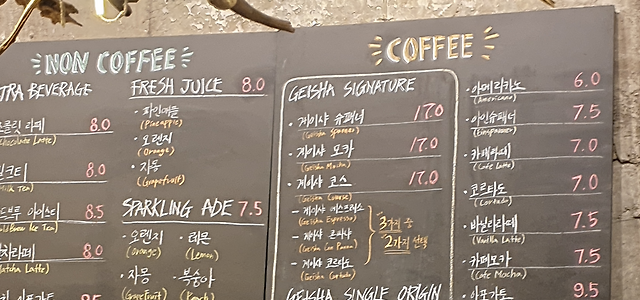 NON COFFEE
TRA BEVERAGE
초콜릿 라떼 8.0
(Chocolate Latte)
밀크티 8.0
(Milk Tea)
드브루 아이스티 8.5
Cold Brew Ice Tea
말차라떼 8.0
Matcha Latte
8.5
FRESH JUICE 8.0
· 파인애플
(Pineapple)
· 오렌지
(Orange)
· 자몽
(Grapefruit)
SPARKLING ADE 7.5
· 오렌지
(Orange)
· 레몬
(Lemon)
· 자몽
(Grapefruit)
· 복숭아
(Peach)
COFFEE
GEISHA SIGNATURE
· 게이샤 슈페너 17.0
(Geisha Spanner)
· 게이샤 모카 17.0
(Geisha Mocha)
· 게이샤 코스 17.0
(Geisha Course)
- 게이샤 에스프레소
(Geisha Espresso)
- 게이샤
- 게이샤 코르타도
(Geisha Cortado)
3가지 중
2가지 선택
GEISHA SINGLE ORIGIN
· 아메리카노 6.0
(Americano)
· 아인슈페너 7.5
(Einspanner)
· 카페라떼 7.0
(Cafe Latte)
· 코르타도 7.0
(Cortado)
· 바닐라라떼 7.5
(Vanilla Latte)
· 카페모카 7.5
(Cafe Mocha)
· 아포가토 9.5